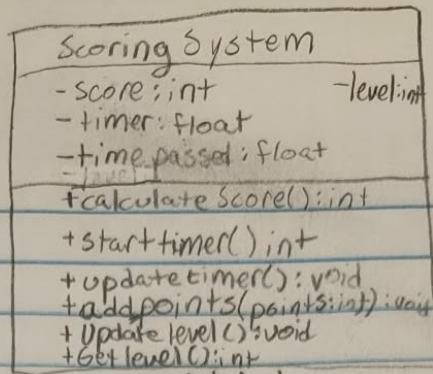 Scoring System
- score: int -level: int
- timer: float
- time passed: float
+calculate Score(): int
+start timer() int
+update timer(): void
+add points(points: int): void
+ Update level(): void
+Get level(): int